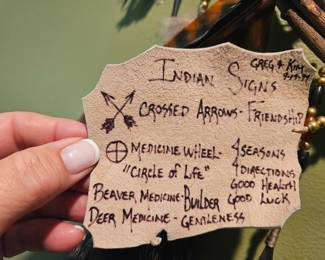 Greg & Kim
Indian Signs
Crossed Arrows - Friendship
Medicine Wheel - 4 Seasons
"Circle of Life" 4 Directions
Good Health
Beaver Medicine - Builder Good Luck
Deer Medicine - Gentleness